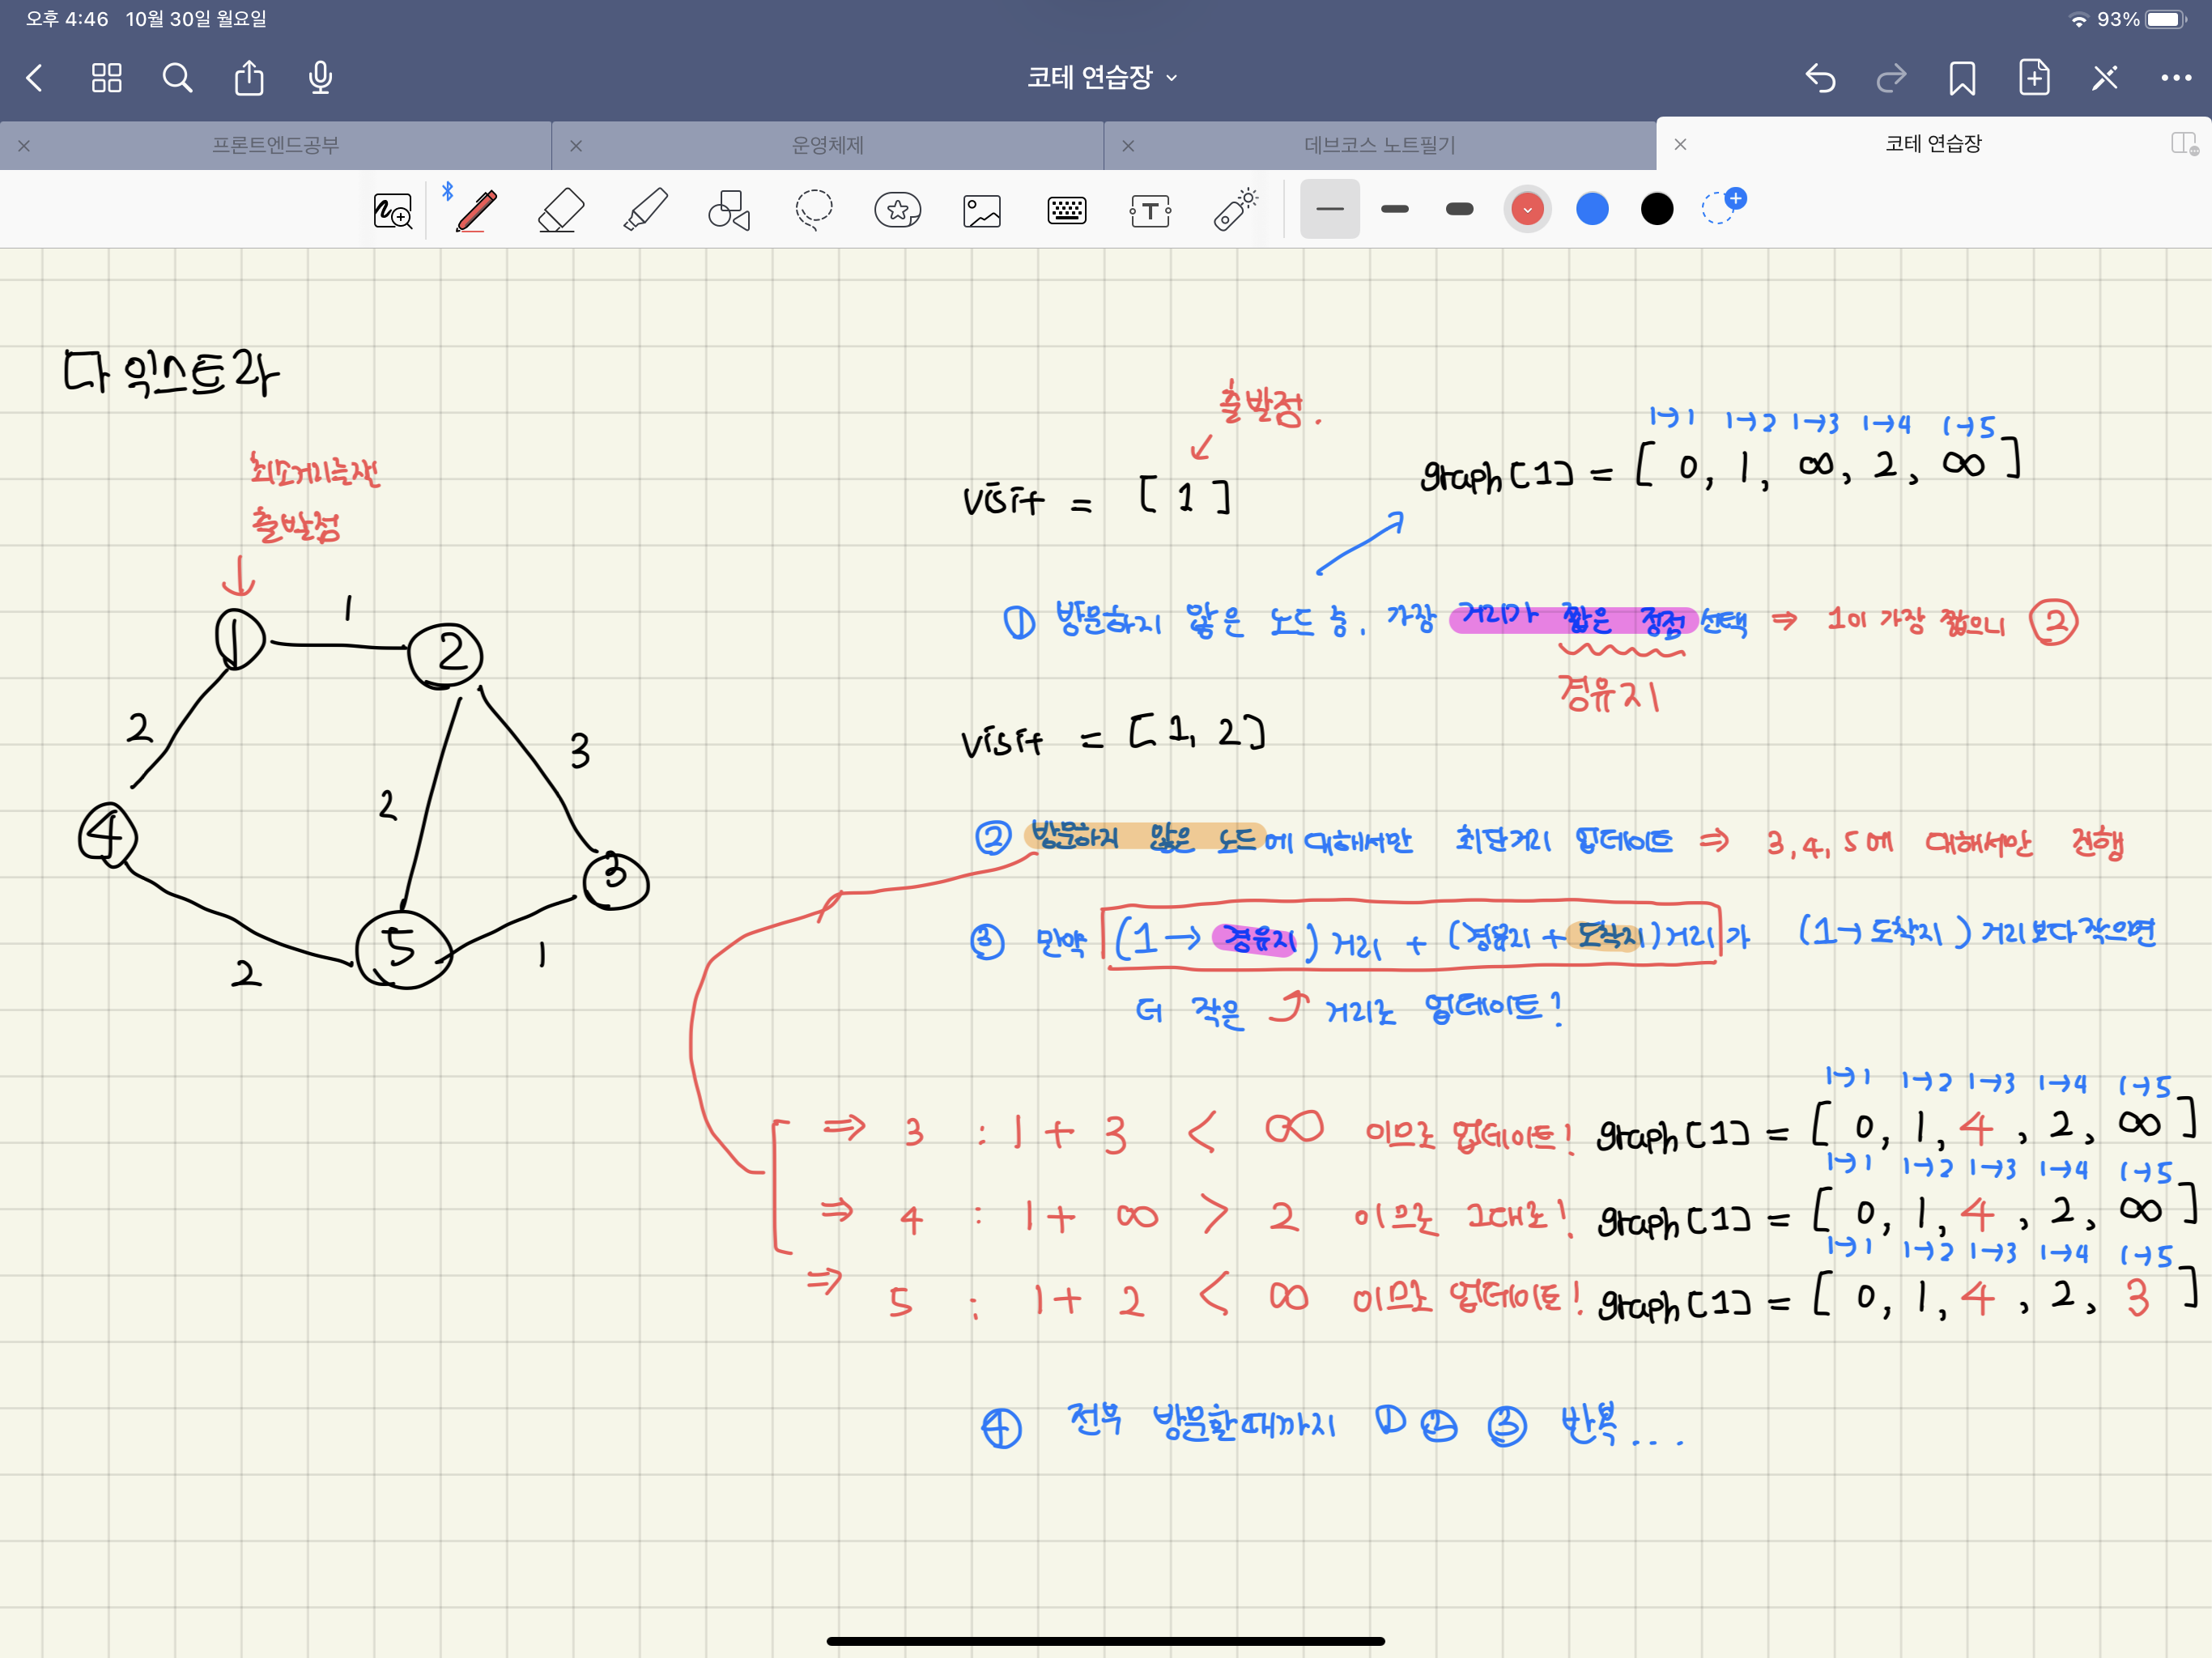 오후 4:46 10월 30일 월요일 93%
코테 연습장
프론트엔드공부 운영체제 데브코스 노트필기 코테 연습장
다익스트라
최소거리측정
출발점
1
1
2
2
3
2
4
3
5
2
1
출발점.
visit = [ 1 ]
1→1 1→2 1→3 1→4 1→5
graph[1] = [ 0, 1, ∞, 2, ∞ ]
① 방문하지 않은 노드 중, 가장 거리가 짧은 정점 선택 ⇒ 1이 가장 짧으니 ②
경유지
visit = [ 1, 2 ]
② 방문하지 않은 노드에 대해서만 최단거리 업데이트 ⇒ 3, 4, 5에 대해서만 진행
③ 만약 (1 → 경유지) 거리 + (경유지 + 도착지) 거리 가 (1→도착지) 거리보다 작으면
더 작은 거리로 업데이트!
1→1 1→2 1→3 1→4 1→5
⇒ 3 : 1 + 3 < ∞ 이므로 업데이트! graph[1] = [ 0, 1, 4, 2, ∞ ]
1→1 1→2 1→3 1→4 1→5
⇒ 4 : 1 + ∞ > 2 이므로 그대로! graph[1] = [ 0, 1, 4, 2, ∞ ]
1→1 1→2 1→3 1→4 1→5
⇒ 5 : 1 + 2 < ∞ 이므로 업데이트! graph[1] = [ 0, 1, 4, 2, 3 ]
④ 전부 방문할때까지 ① ② ③ 반복...